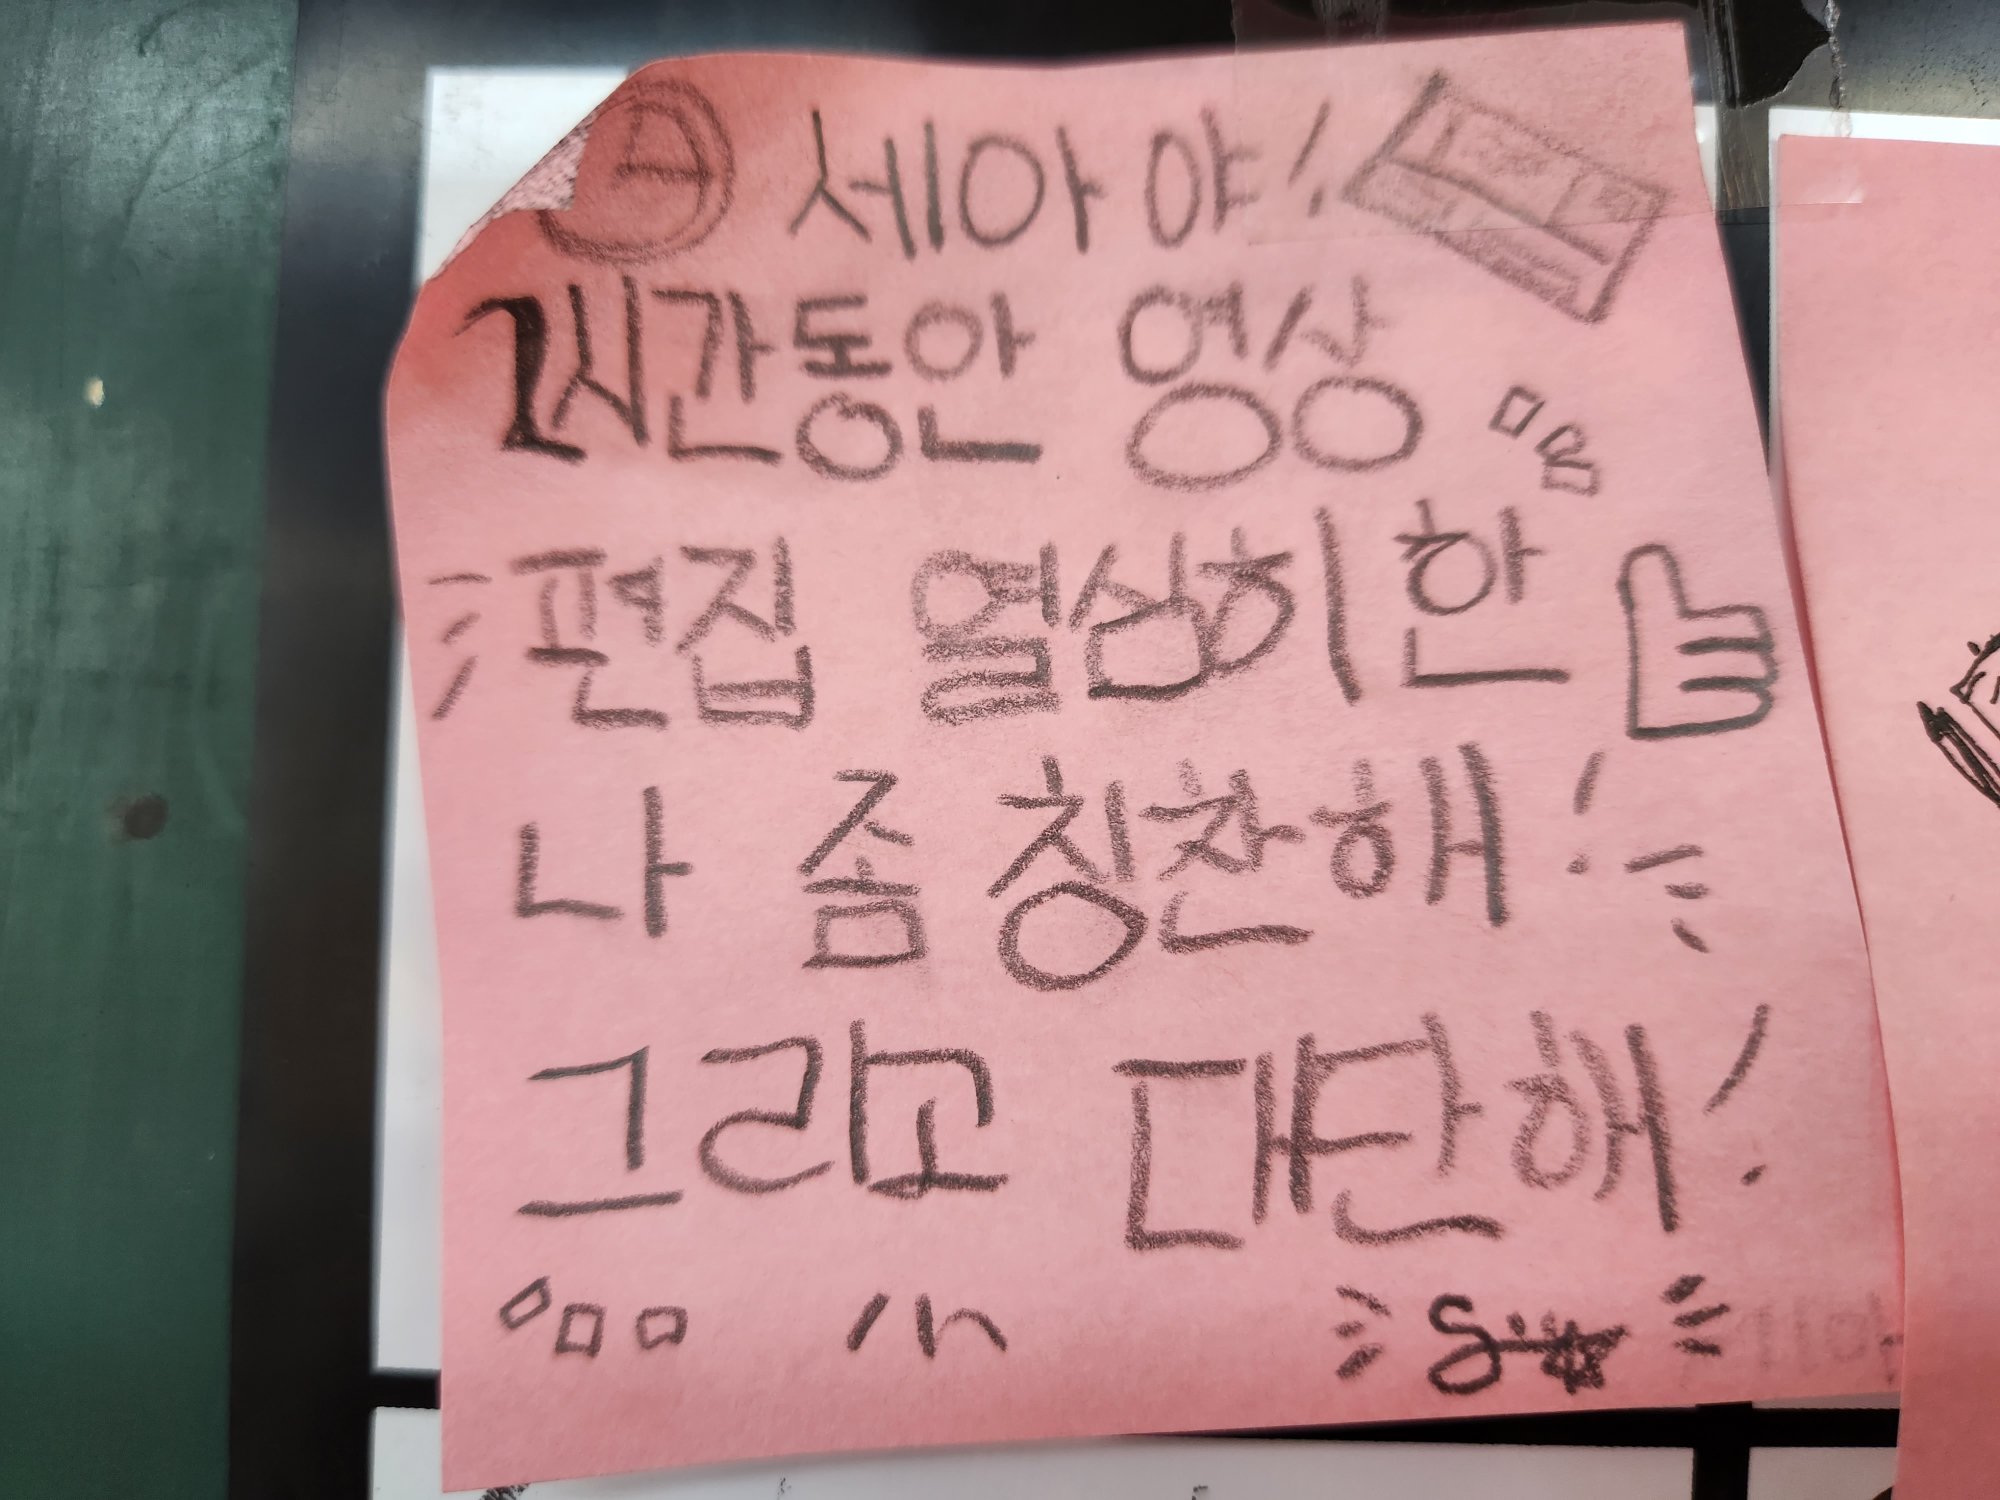 세아야!
1시간동안 영상
편집 열심히한
나 좀 칭찬해!
그리고 대단해!